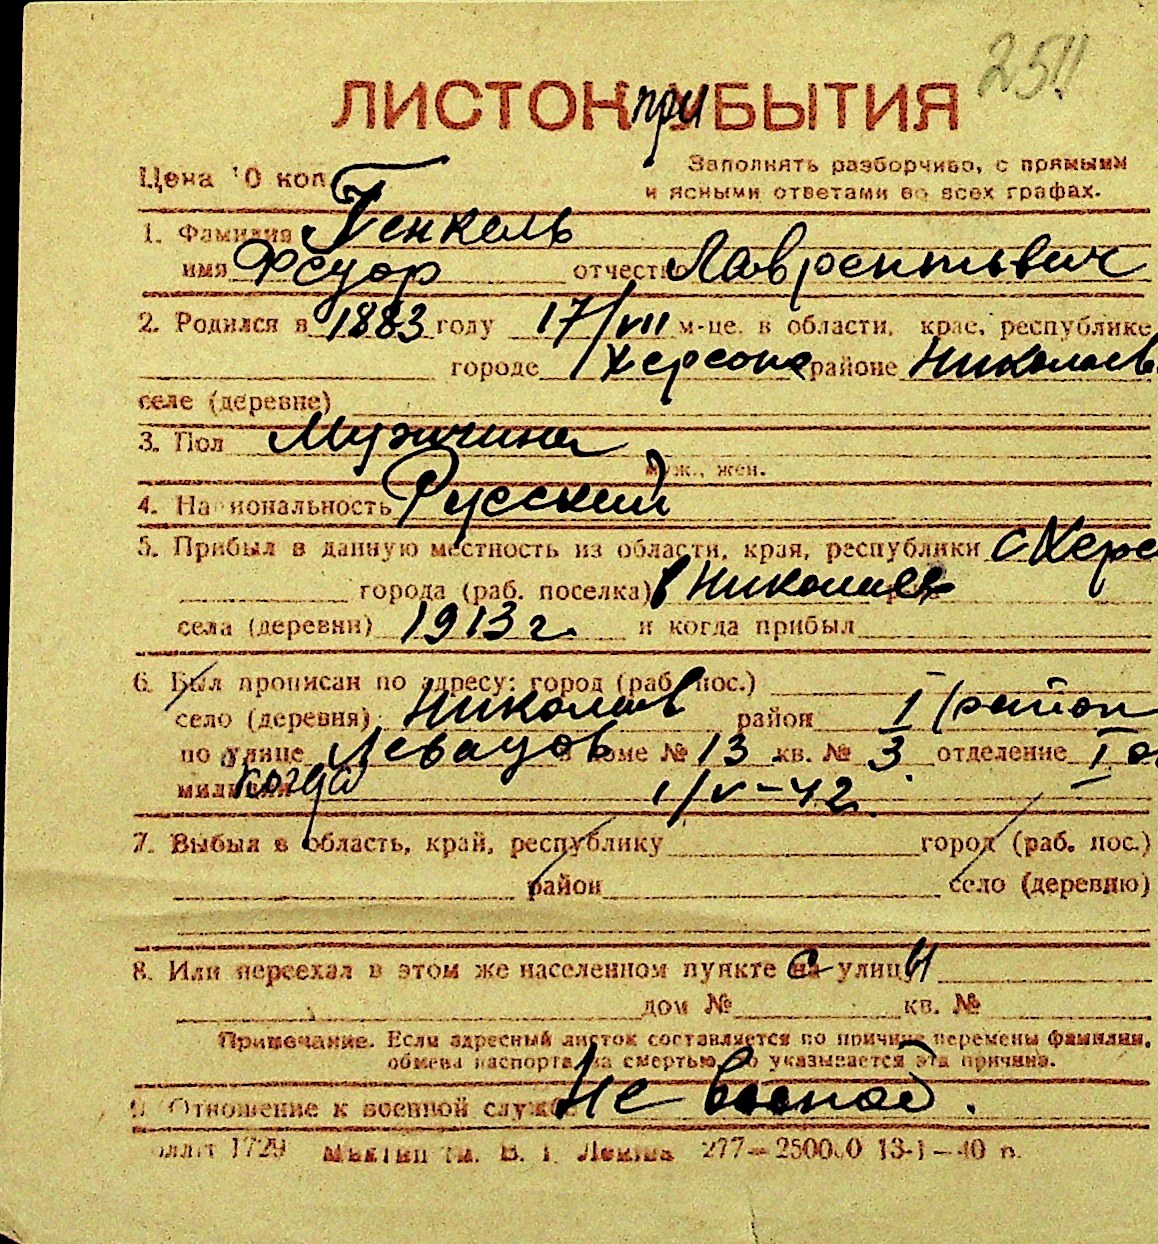 25!!
ЛИСТОК при УБЫТИЯ
Цена 10 коп. Заполнять разборчиво, с прямыми
и ясными ответами во всех графах.
1. Фамилия Генкель
имя Федор отчество Лаврентьевич
2. Родился в 1883 году 17/VII м-це, в области, крае, республике
городе Херсоне районе Николаев
селе (деревне)
3. Пол Мужчина
муж., жен.
4. Национальность Русский
5. Прибыл в данную местность из области, края, республики с Херс
города (раб. поселка) в Николаев
села (деревни) 1913 г. и когда прибыл
6. Был прописан по адресу: город (раб. пос.)
село (деревня) Николаев район I район
по улице в доме № 13 кв. № 3. отделение I
милиции когда 1/V-42
7. Выбыл в область, край, республику город (раб. пос.)
район село (деревню)
8. Или переехал в этом же населенном пункте на с улицы
дом № кв. №
Примечание. Если адресный листок составляется по причине перемены фамилии,
обмена паспорта, за смертью, то указывается эта причина.
9. Отношение к военной службе Не военнооб.
1729 им. В. И. Ленина 277—250000 13-I—40 г.